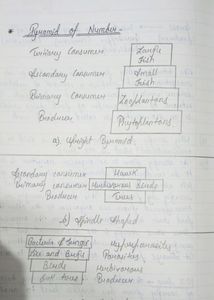 * Pyramid of Number -
Tertiary Consumer Large
Fish
Secondary Consumer Small
Fish
Primary Consumer Zooplanktons
Producer Phytoplanktons
a). Upright Pyramid
Secondary consumer Hawk
Primary consumer Herbivorous Birds
Producer Trees
b) Spindle Shaped
Bacteria & Fungi Hyperparasites
Lice and Bugs Parasites
Birds Herbivorous
trees Producer